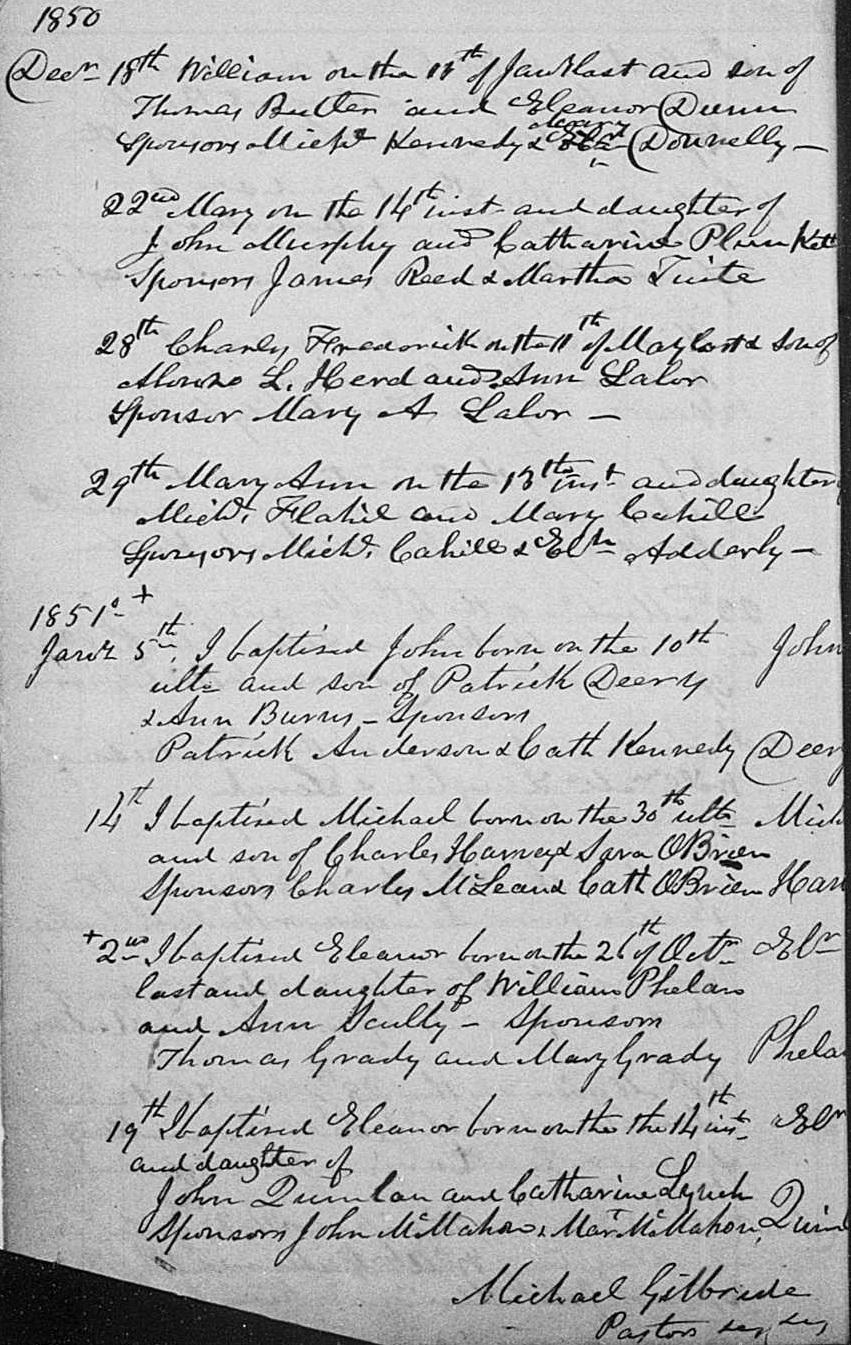 1850
Decr 18th William on the 11th of Jany last and son of
Thomas Butler and Eleanor Dunn
Mary
Sponsors Michl Kennedy & Donnelly —
22nd Mary on the 14th inst and daughter of
John Murphy and Catharine Plunkett
Sponsors James Reed & Martha Tuite
28th Charles Frederick on the 11th of May last & son of
L. Herd and Ann Lalor
Sponsor Mary A Lalor —
29th Mary Ann on the 13th inst and daughter
Michl. Flahil and Mary Cahill
Sponsors Michl. Cahill & Elth Adderly —
1851 +
Jany 5th, I baptised John born on the 10th John
ulto and son of Patrick Deery
& Ann Burns — Sponsors
Patrick Anderson & Cath Kennedy Deery
14th I baptised Michael born on the 30th ulto Mich
and son of Charles Harney & Sara OBrien
Sponsors Charles McLean & Cath OBrien Har
+ 2nd I baptised Eleanor born on the 26 of Octr Elr
last and daughter of William Phelan
and Ann Scully — Sponsors
Thomas Grady and Mary Grady Phela
19th I baptised Eleanor born on the the 14th inst Elr
and daughter of
John Quinlan and Catharine Lynch
Sponsors John McMahon, Mart McMahon, Quin
Michael Gilbride
Pastor